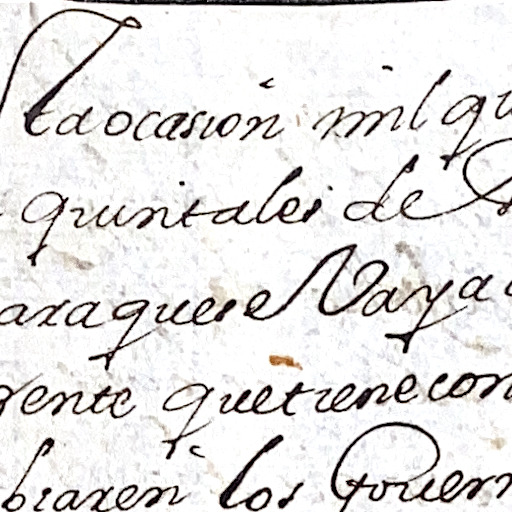 sta ocasion mil qu
quintales de
araque se Vaya
gente que tiene con
biaren los Gouern